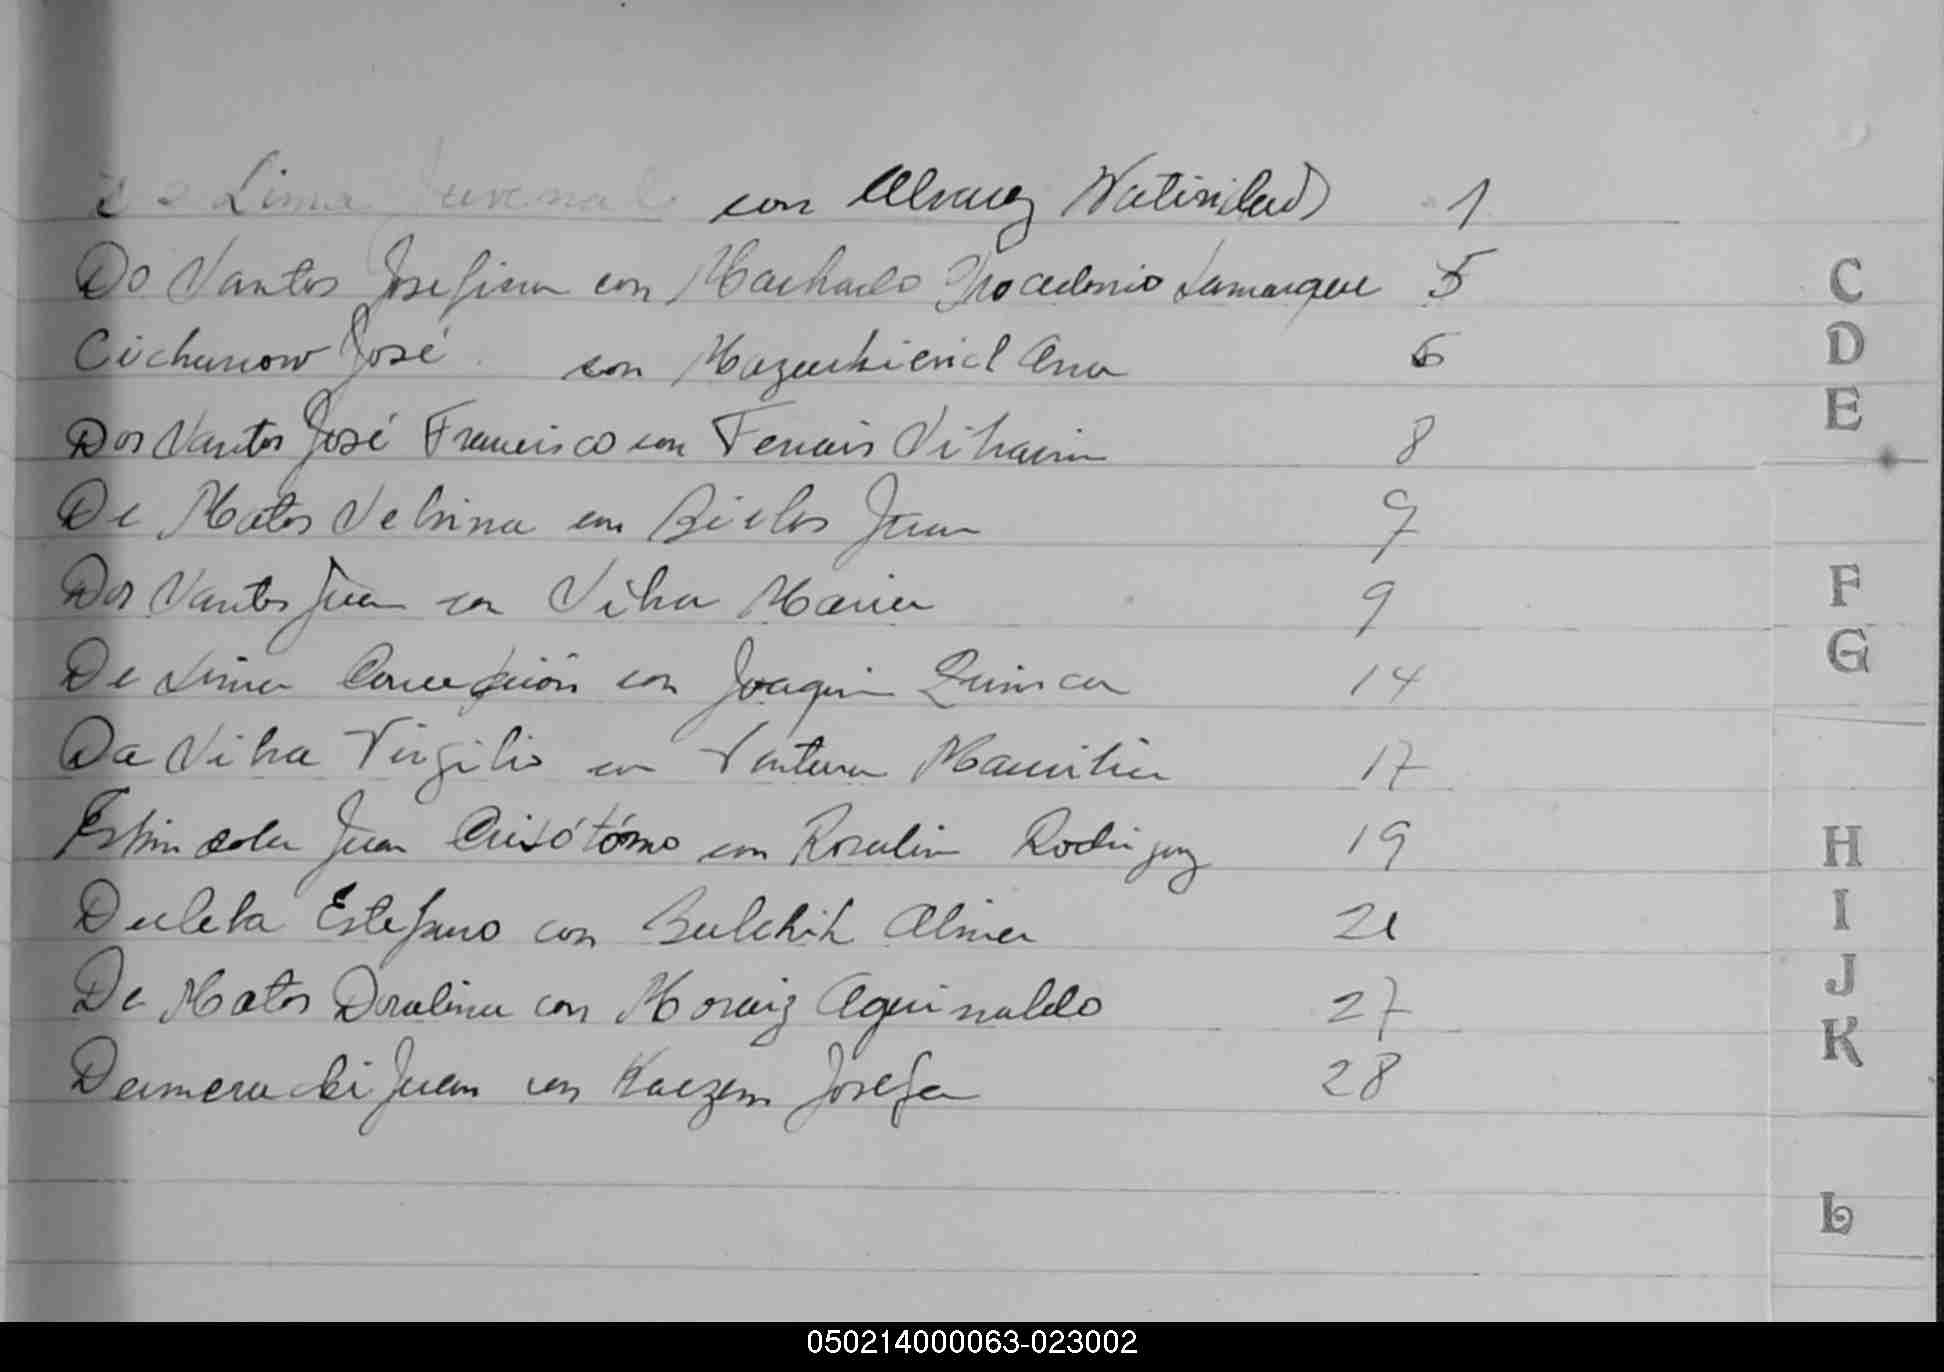 De Lima Juvenal con Alvarez Natividad 1
Do Santos Josefina con Machado Procedonio Lamarque 5
Cichanow José con Ana 6
Dos Santos José Francisco con Ferrais Silvain 8
De Matos Selvina con Bielos Juan 9
Dos Santos Juan con Silva Maria 9
De Lima Concepción con Joaquin 14
Da Silva Virgilio con Ventura 17
Juan Crisótómo con Rosalia Rodriguez 19
Estefano con 21
De Matos Doralina con Moraiz Aguinaldo 27
Juan con Josefa 28
C
D
E
F
G
H
I
J
K
L
050214000063-023002